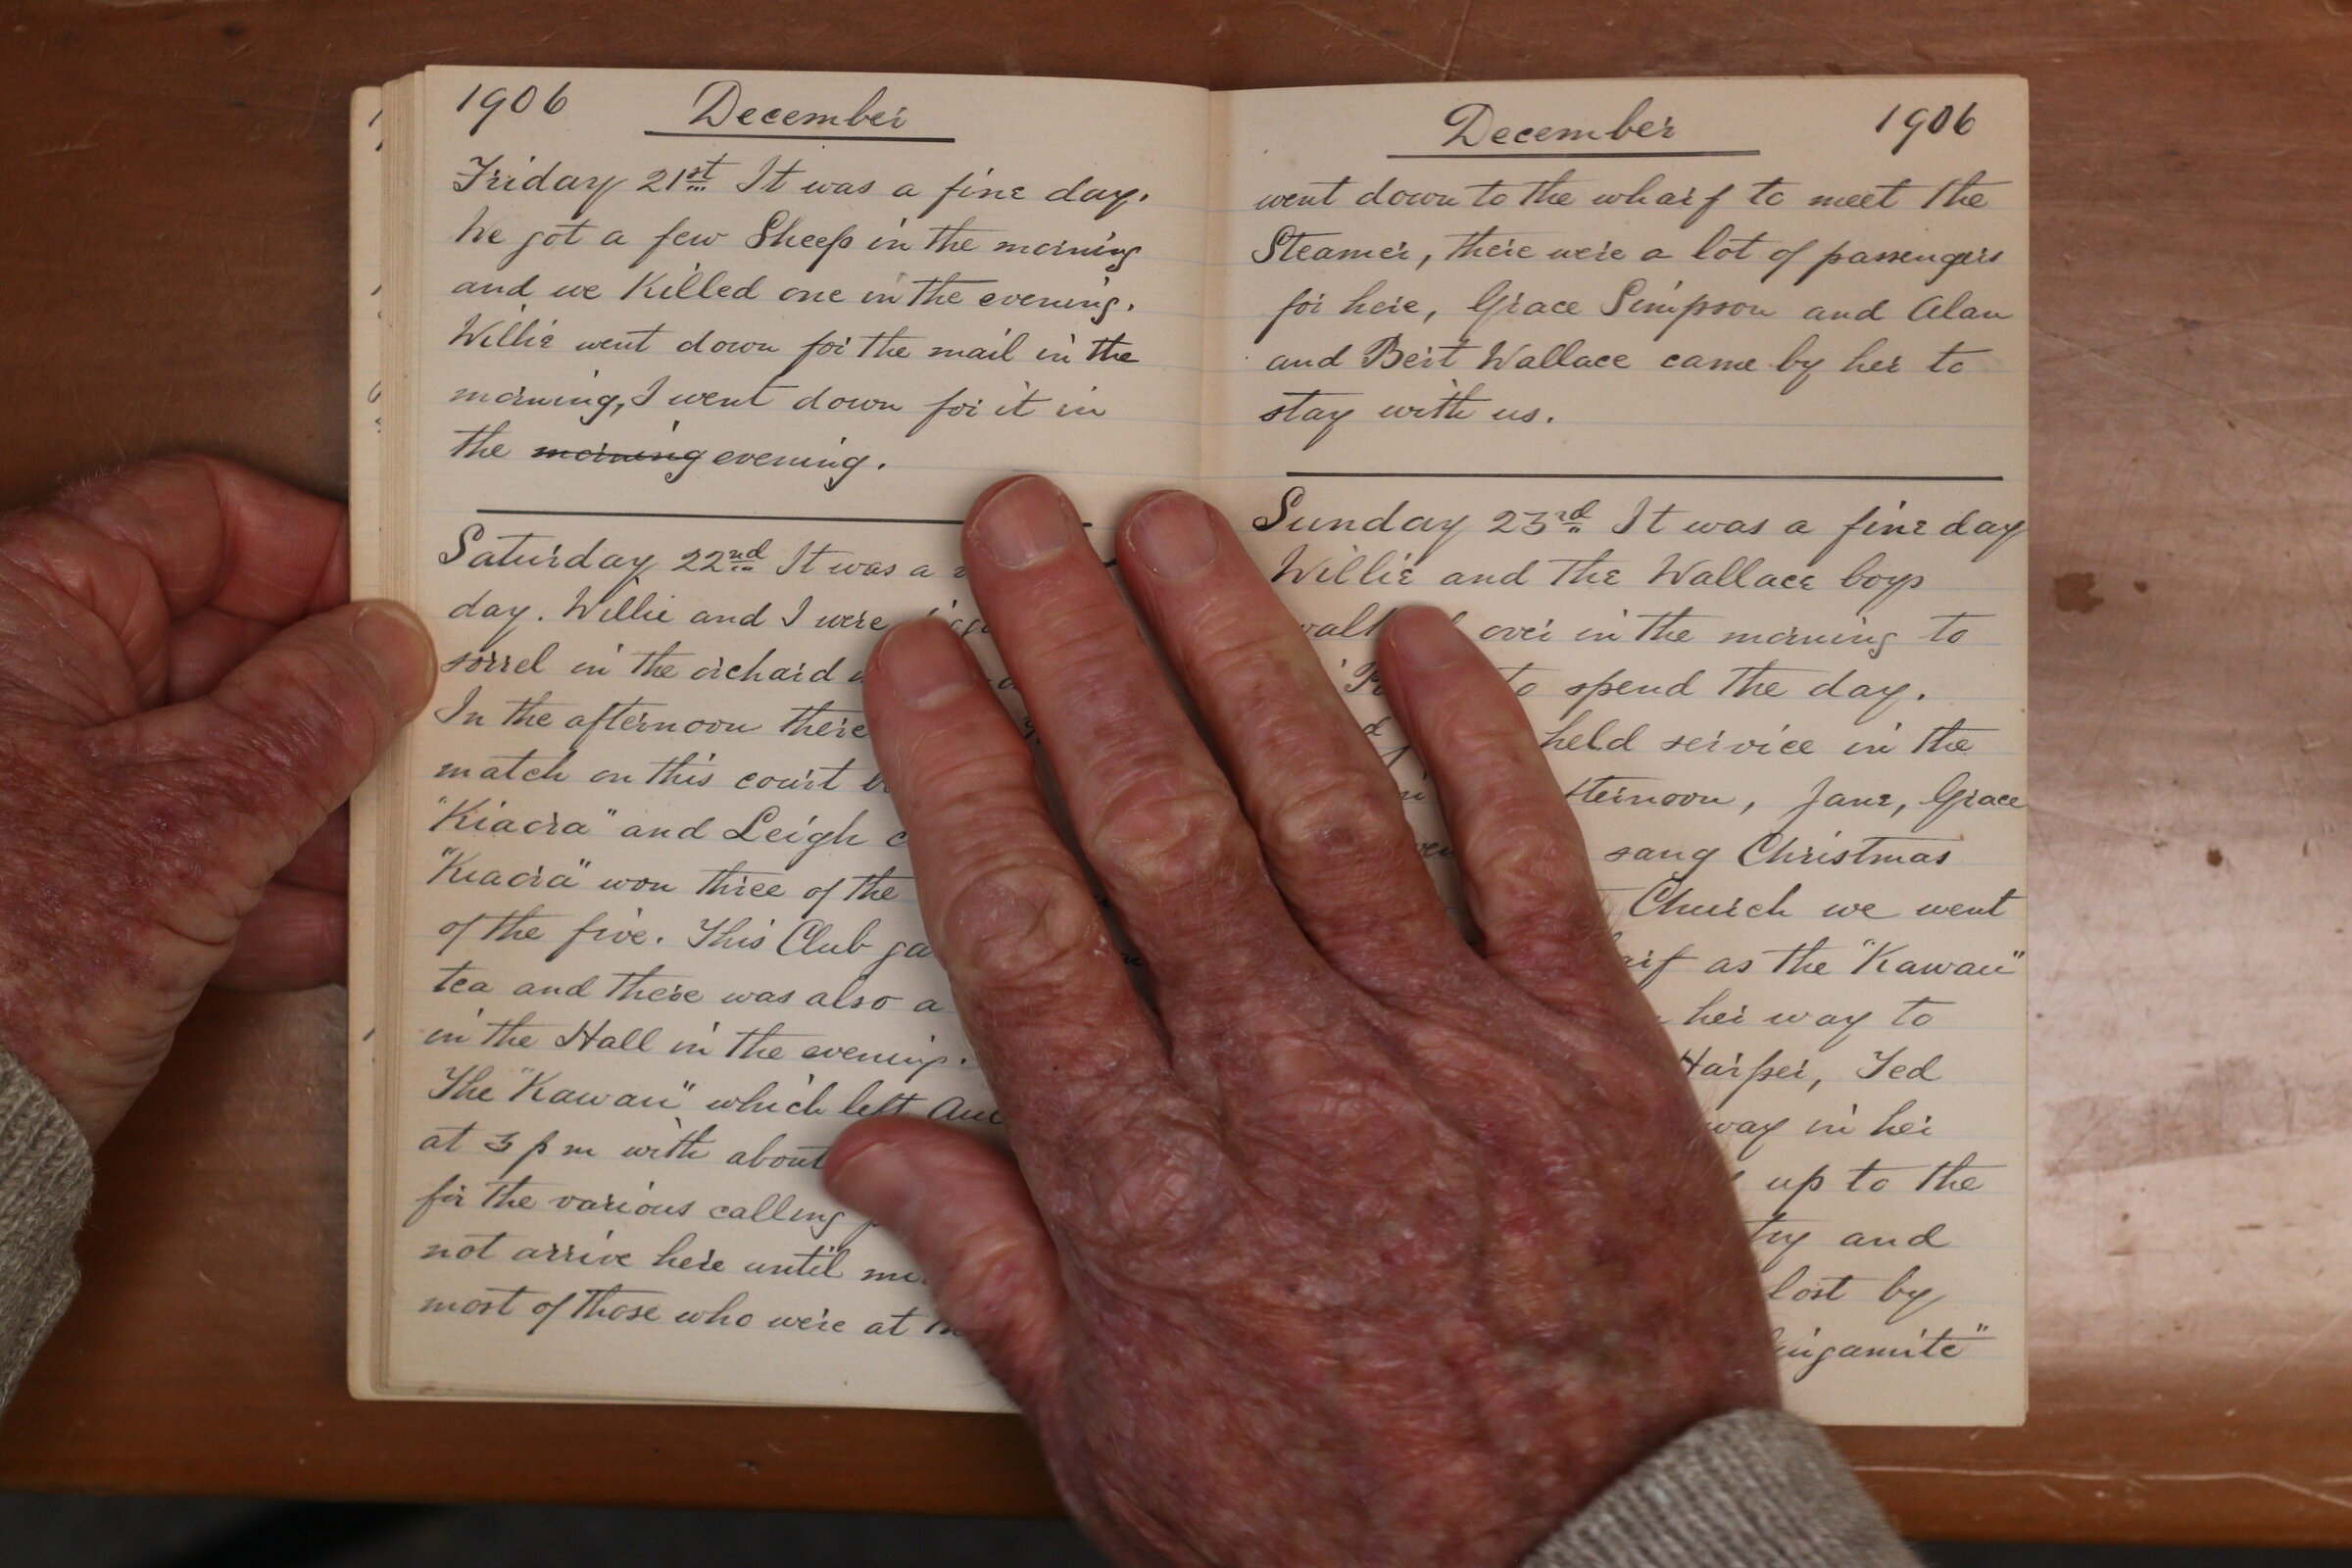 1906 December
Friday 21st It was a fine day.
We got a few Sheep in the morning
and we Killed one in the evening.
Willie went down for the mail in the
morning, I went down for it in
the morning evening.
Saturday 22nd It was a
day. Willie and I were
sorrel in the orchard
In the afternoon there
match on this court
"Kiaora" and Leigh
"Kiaora" won three of the
of the five. This Club
tea and there was also a
in the Hall in the evening.
The "Kawau" which left
at 3 pm with about
for the various calling
not arrive here until
most of those who were at
December 1906
went down to the wharf to meet the
Steamer, there were a lot of passengers
for here, Grace Simpson and Alan
and Bert Wallace came by her to
stay with us.
Sunday 23rd It was a fine day
Willie and the Wallace boys
over in the morning to
to spend the day.
held service in the
Jane, Grace
sang Christmas
Church we went
as the "Kawau"
her way to
Harper, Ted
in her
up to the
and
lost by